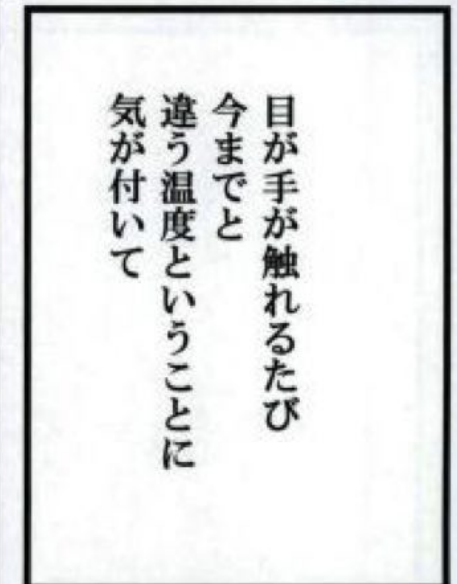 目が手が触れるたび
今までと
違う温度ということに
気が付いて